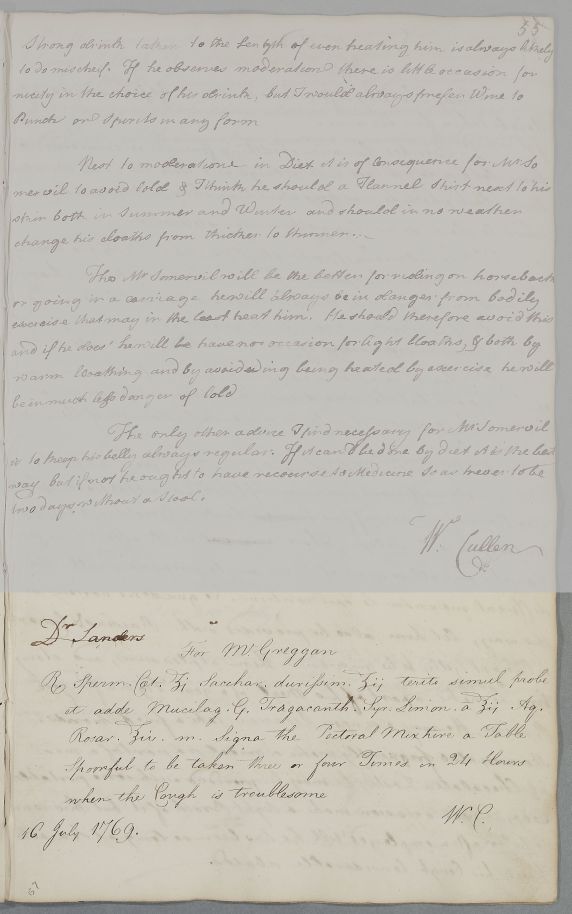 55
Strong drink taken to the length of even heating him is always likely
to do mischeif. If he observes moderation there is little occasion for
nicity in the choice of his drink, but I would always prefer Wine to
Punch or Spirits in any form
Next to moderatione in Diet it is of consequence for Mr. So
mervil to avoid Cold & I think he should a Flannel Shirt next to his
skin both in Summer and Winter and should in no weather
change his cloaths from thicker to thinner.
Tho Mr Somervil will be the better for riding on horseback
or going in a carriage he will always be in danger from bodily
exercise that may in the least heat him. He should therefore avoid this
and if he does he will be have no occasion for light Cloaths, & both by
warm Cloathing and by avoideding being heated by exercise he will
be in much less danger of Cold
The only other advice I find necessary for Mr. Somervil
is to keep his belly always regular. If it can'd be done by diet it is the best
way but if not he ought to have recourse to Medicine so as never to be
two days without a Stool.
Wm. Cullen
Dr Sanders
For Mr Greggan
℞ Sperm. Cet. ʒj Sacchar. durissim. ʒij terito simul probe
et adde Mucilag. G. Tragacanth. Syr. Limon. a ʒij Aq.
Rosar. ʒiv. m. Signa the Pectoral Mixture a Table
spoonful to be taken three or four Times in 24 Hours
when the Cough is troublesome
W. C.
16 July 1769.